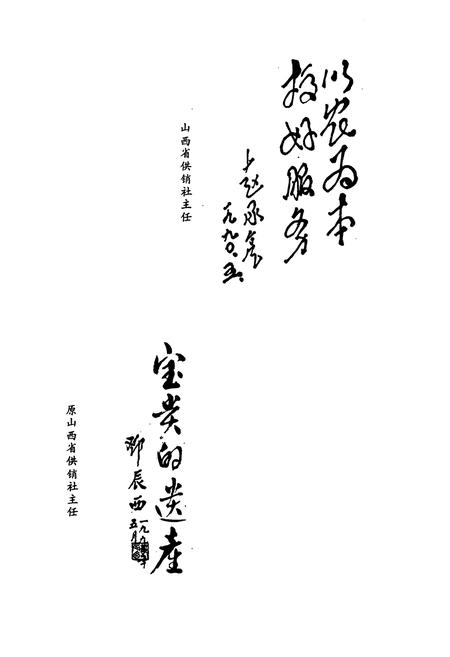 以农为本
搞好服务
赵承鑫
一九九〇.五
山西省供销社主任
宝贵的遗产
邓辰西
五月
原山西省供销社主任